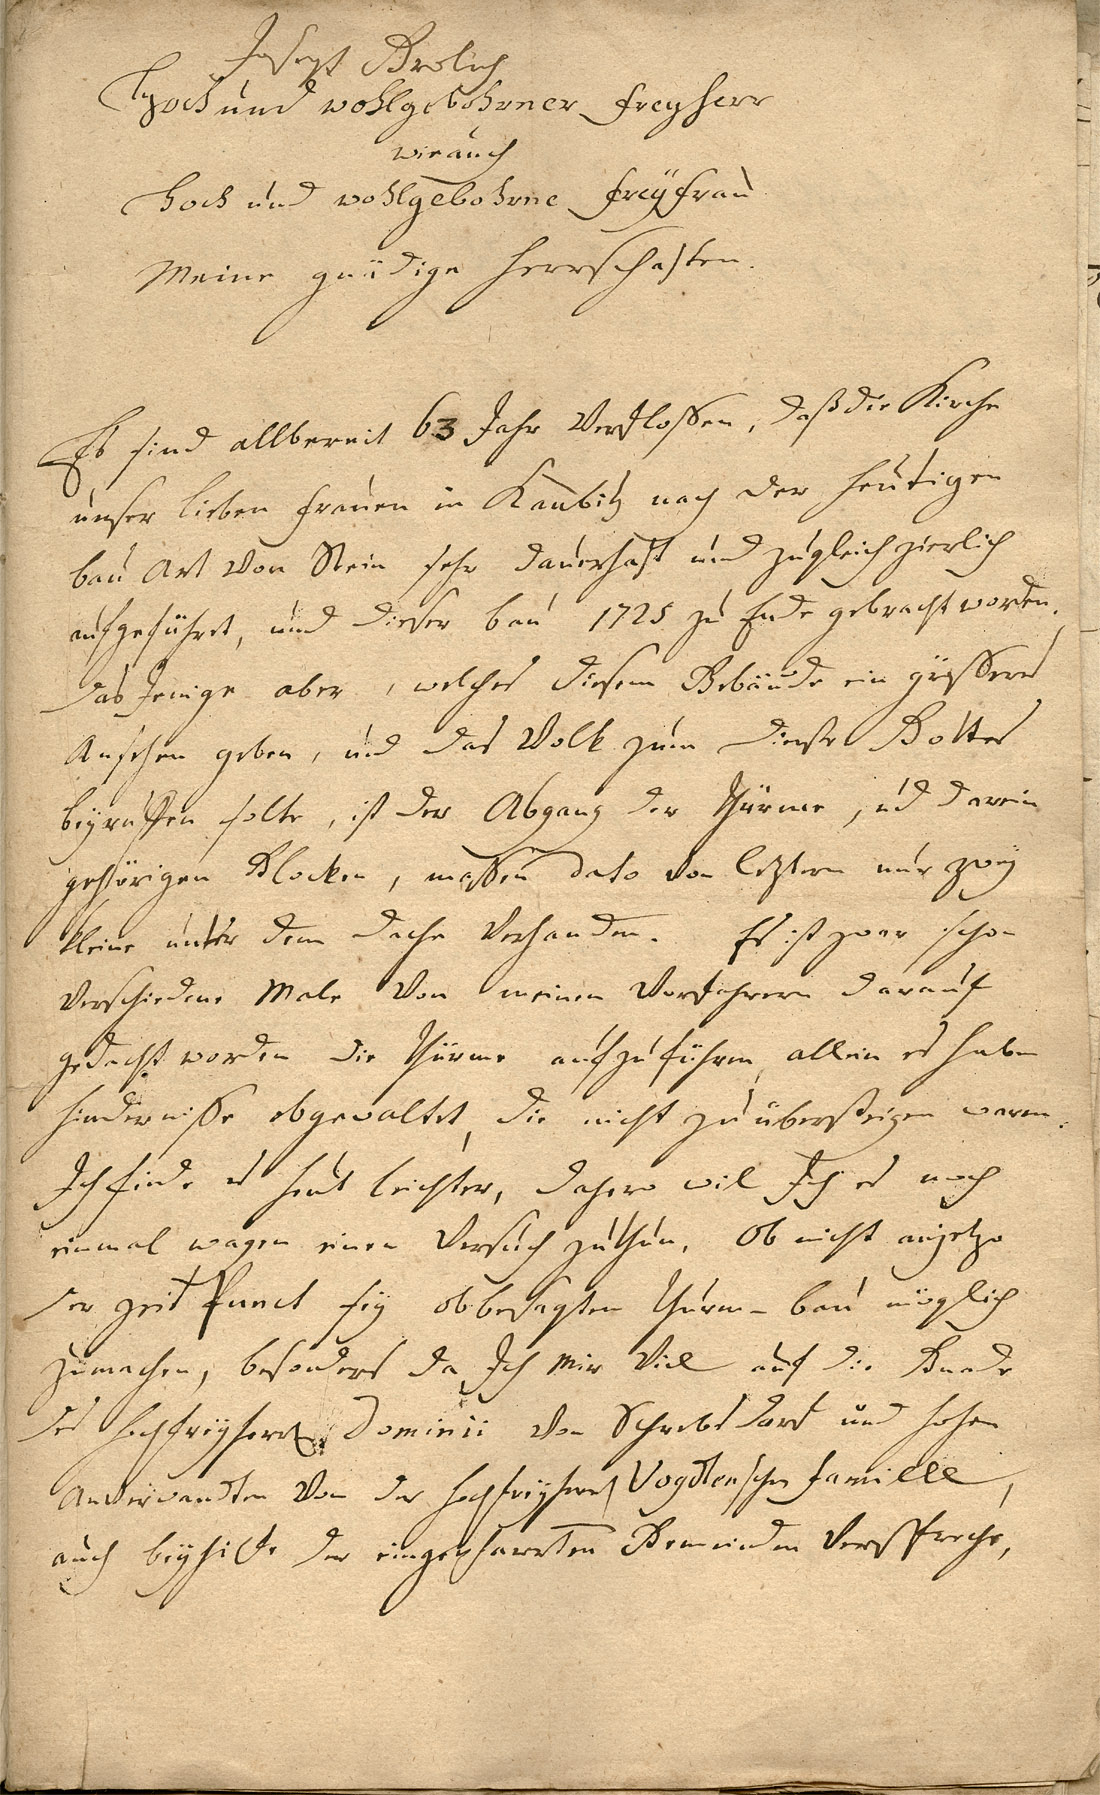 Joseph Brolich
Hoch und wohlgebohrner Freyherr
wie auch
Hoch und wohlgebohrne Freÿfrau
Meine gnädige Herrschaften.
Es sind allbereit 63 Jahr Verflossen, daß die Kirche
unser lieben Frauen in Kaubitz nach der heutigen
bau Art von Stein sehr dauerhaft und zugleich zierlich
aufgeführet, und dieser bau 1725 zu Ende gebracht worden.
das Jenige aber, welches diesem Gebäude ein grösseres
Ansehen geben, und das Volk zum Dienste Gottes
beÿruffen solte, ist der Abgang der Thürme, ud darein
gehörigen Glocken, massen dato von leztern nur zweÿ
kleine unter dem dache Verhanden. Es ist zwar schon
verschiedene Male Von meinen Vorfahrern darauf
gedacht worden die Thürme aufzuführen, allein es haben
hindernisse obgewaltet, die nicht zu übersteigen waren.
Ich finde es heut leichter, dahero wil Ich es noch
einmal wagen einen Versuch zu thun, Ob nicht anjetzo
der Zeit Punct seÿ obbesagten Thurm-bau möglich
zumachen, besonders da Ich mir Viel auf die Gnade
des Hochfreÿherrl Dominii von Schrebsdorf und hohen
Anverwandten Von der Hochfreÿherrl Vogdtenschen Famielle,
auch beÿhilfe der eingepfarrten Gemeinden Verspreche,